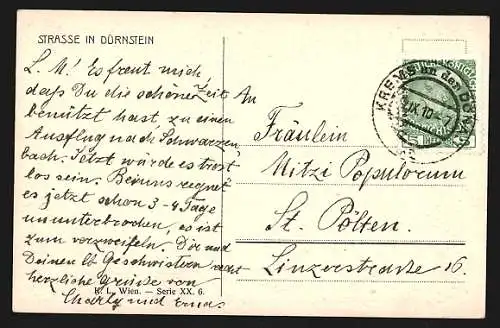 STRASSE IN DÜRNSTEIN
L. M! Es freut mich,
daß Du die schöne Zeit
benützt hast, zu einen
Ausflug nach Schwarzen
bach. Jetzt würde es trost
los sein. Bei uns regnet
es jetzt schon 3-4 Tage
ununterbrochen, es ist
zum verzweifeln. Dir und
Deinen lb. Geschwistern recht
herzliche Grüsse von
Charly und Erna.
An
Fräulein
Mitzi Populorum
St. Pölten.
Linzerstrasse 16.
KREMS an der DONAU
IX 10-7
R. L. Wien. — Serie XX. 6.